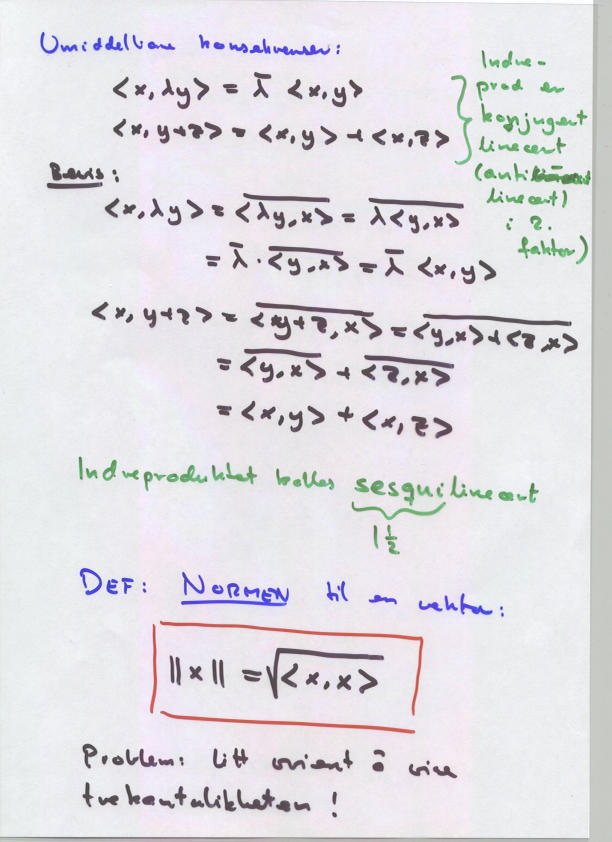 Umiddelbare konsekvenser:
<x, λy> = λ̄ <x,y>
<x, y+z> = <x,y> + <x,z>
Indre-
prod er
konjugert
lineært
(anti
lineært)
i 2.
faktor)
Bevis:
<x, λy> = \overline{<λy, x>} = \overline{λ<y,x>}
= λ̄ · \overline{<y,x>} = λ̄ <x,y>
<x, y+z> = \overline{<y+z, x>} = \overline{<y,x> + <z,x>}
= \overline{<y,x>} + \overline{<z,x>}
= <x,y> + <x,z>
Indreproduktet kalles sesquilineært
1 1/2
DEF: NORMEN til en vektor:
||x|| = √<x,x>
Problem: litt vrient å vise
trekantulikheten!